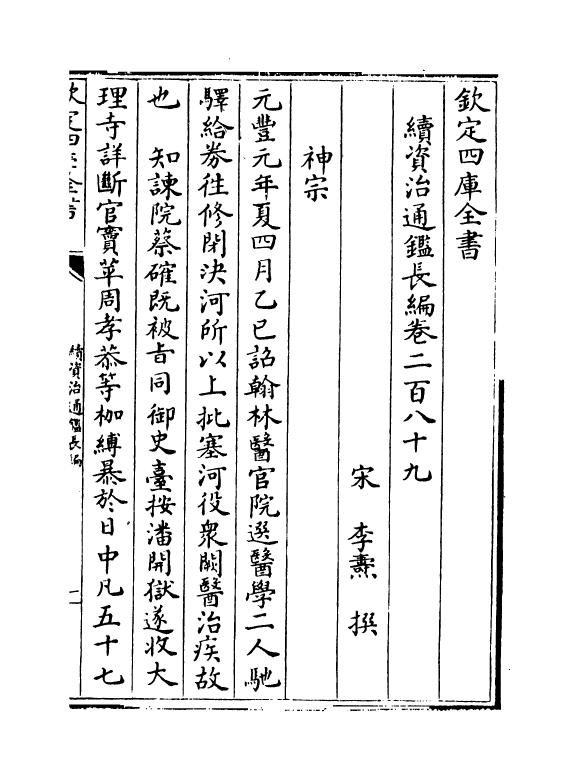 欽定四庫全書
續資治通鑑長編卷二百八十九
宋 李燾 撰
神宗
元豐元年夏四月乙巳詔翰林醫官院選醫學二人馳
驛給券往修閉決河所以上批塞河役衆闕醫治疾故
也 知諫院蔡確既被㫖同御史臺按潘開獄遂收大
理寺詳斷官竇苹周孝恭等枷縛暴於日中凡五十七
欽定四庫全書
續資治通鑑長編
一